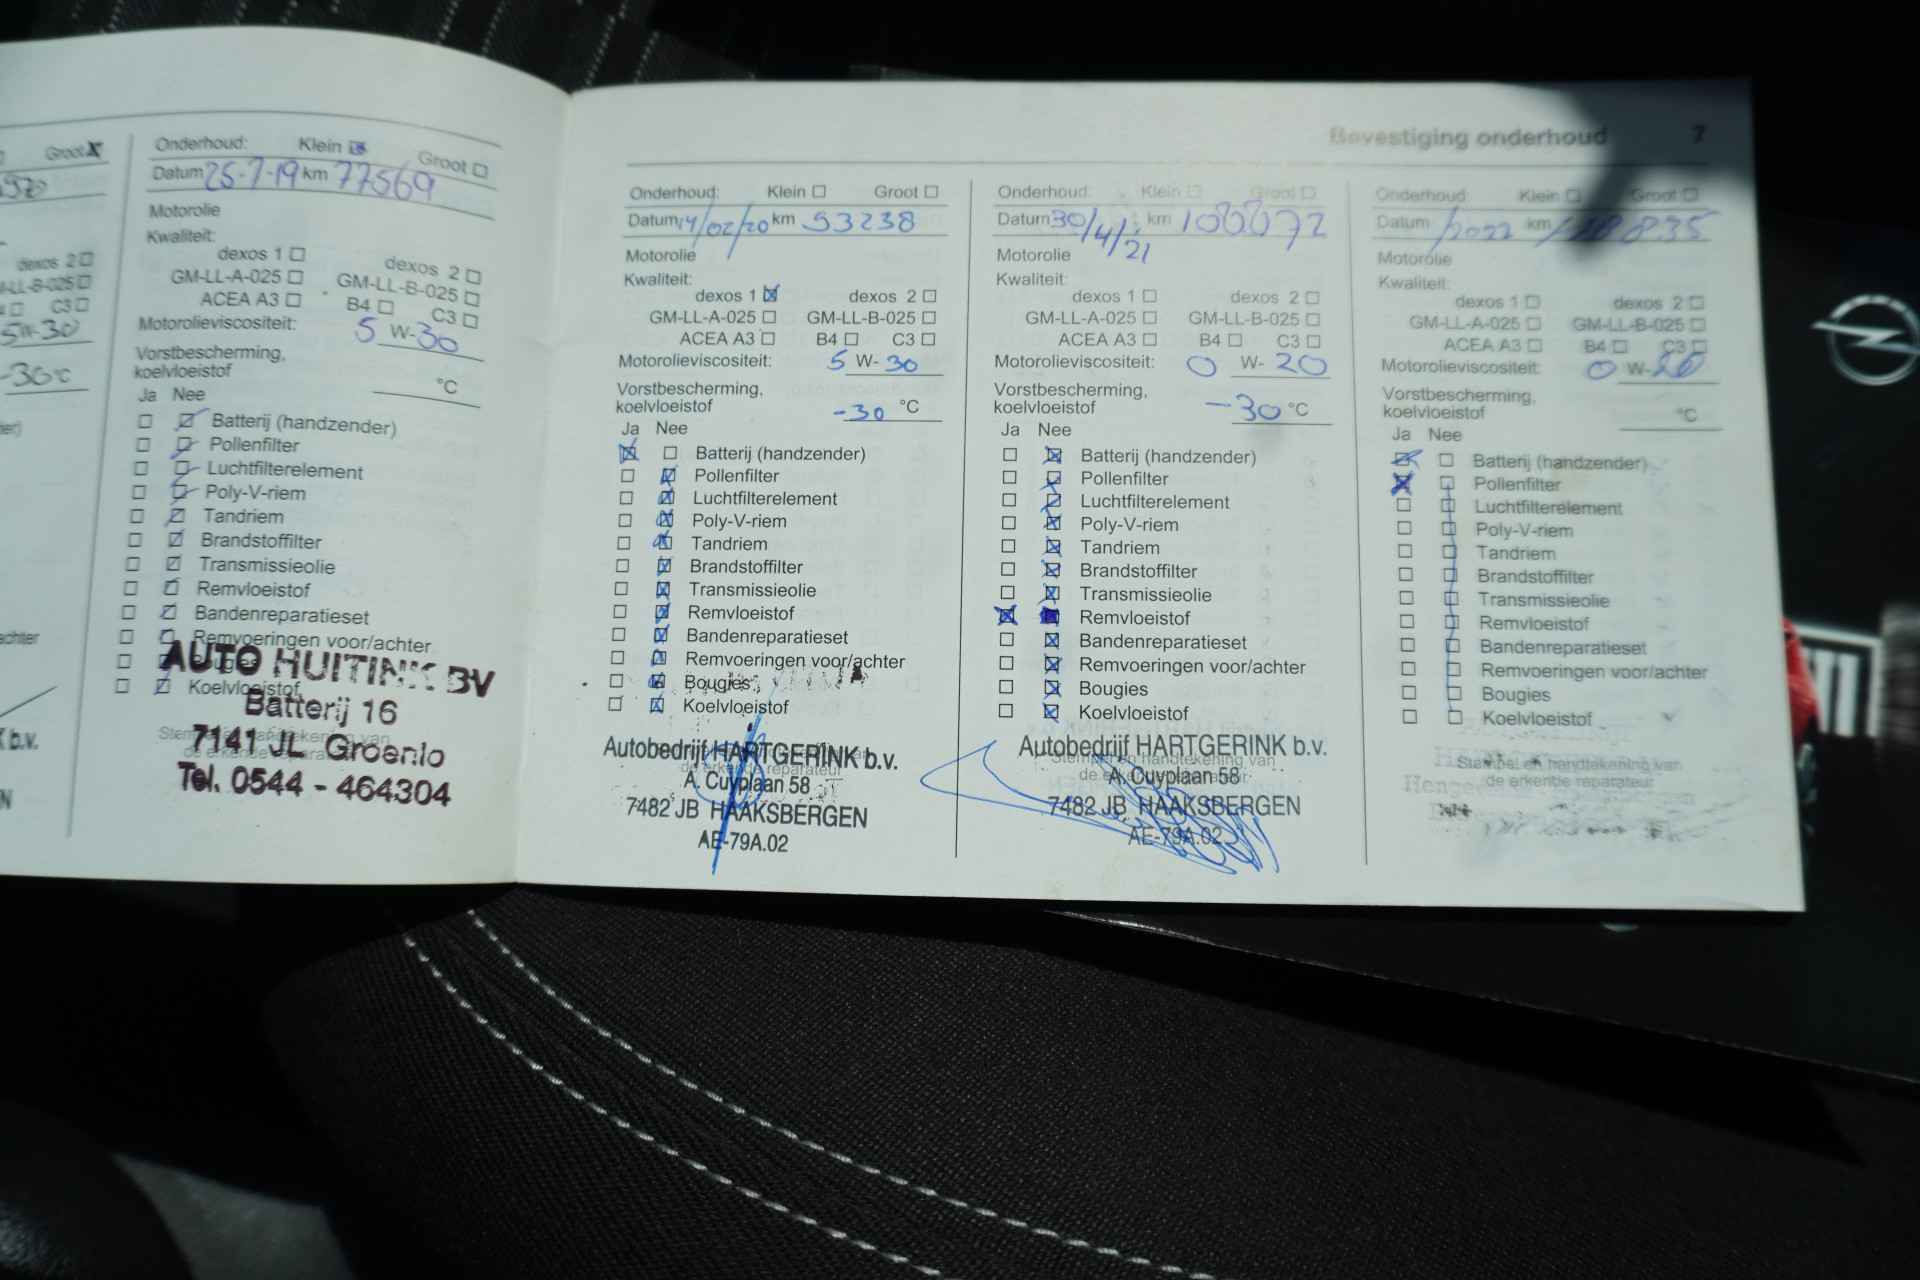 Groot
Onderhoud: Klein Groot
Datum 25-7-19 km 77569
Motorolie
Kwaliteit:
dexos 1 dexos 2
GM-LL-A-025 GM-LL-B-025
ACEA A3 B4 C3
Motorolieviscositeit: 5 W-30
Vorstbescherming,
koelvloeistof °C
Ja Nee
Batterij (handzender)
Pollenfilter
Luchtfilterelement
Poly-V-riem
Tandriem
Brandstoffilter
Transmissieolie
Remvloeistof
Bandenreparatieset
Remvoeringen voor/achter
Bougies
Koelvloeistof
AUTO HUITINK BV
Batterij 16
7141 JL Groenlo
Tel. 0544 - 464304
dexos 2
C3
5W-30
-30°C
b.v.
Bevestiging onderhoud 7
Onderhoud: Klein Groot
Datum 14/02/20 km 93238
Motorolie
Kwaliteit:
dexos 1 dexos 2
GM-LL-A-025 GM-LL-B-025
ACEA A3 B4 C3
Motorolieviscositeit: 5 W-30
Vorstbescherming,
koelvloeistof -30 °C
Ja Nee
Batterij (handzender)
Pollenfilter
Luchtfilterelement
Poly-V-riem
Tandriem
Brandstoffilter
Transmissieolie
Remvloeistof
Bandenreparatieset
Remvoeringen voor/achter
Bougies
Koelvloeistof
Autobedrijf HARTGERINK b.v.
de erkende reparateur
A. Cuyplaan 58
7482 JB HAAKSBERGEN
AE-79A.02
Onderhoud: Klein Groot
Datum 30/4/21 km 100072
Motorolie
Kwaliteit:
dexos 1 dexos 2
GM-LL-A-025 GM-LL-B-025
ACEA A3 B4 C3
Motorolieviscositeit: 0 W-20
Vorstbescherming,
koelvloeistof -30 °C
Ja Nee
Batterij (handzender)
Pollenfilter
Luchtfilterelement
Poly-V-riem
Tandriem
Brandstoffilter
Transmissieolie
Remvloeistof
Bandenreparatieset
Remvoeringen voor/achter
Bougies
Koelvloeistof
Autobedrijf HARTGERINK b.v.
Stempel en handtekening van
de erkende reparateur
A. Cuyplaan 58
7482 JB HAAKSBERGEN
AE-79A.02
Onderhoud: Klein Groot
Datum /2022 km
Motorolie
Kwaliteit:
dexos 1 dexos 2
GM-LL-A-025 GM-LL-B-025
ACEA A3 B4 C3
Motorolieviscositeit: 0 W-20
Vorstbescherming,
koelvloeistof °C
Ja Nee
Batterij (handzender)
Pollenfilter
Luchtfilterelement
Poly-V-riem
Tandriem
Brandstoffilter
Transmissieolie
Remvloeistof
Bandenreparatieset
Remvoeringen voor/achter
Bougies
Koelvloeistof
Stempel en handtekening van
de erkende reparateur